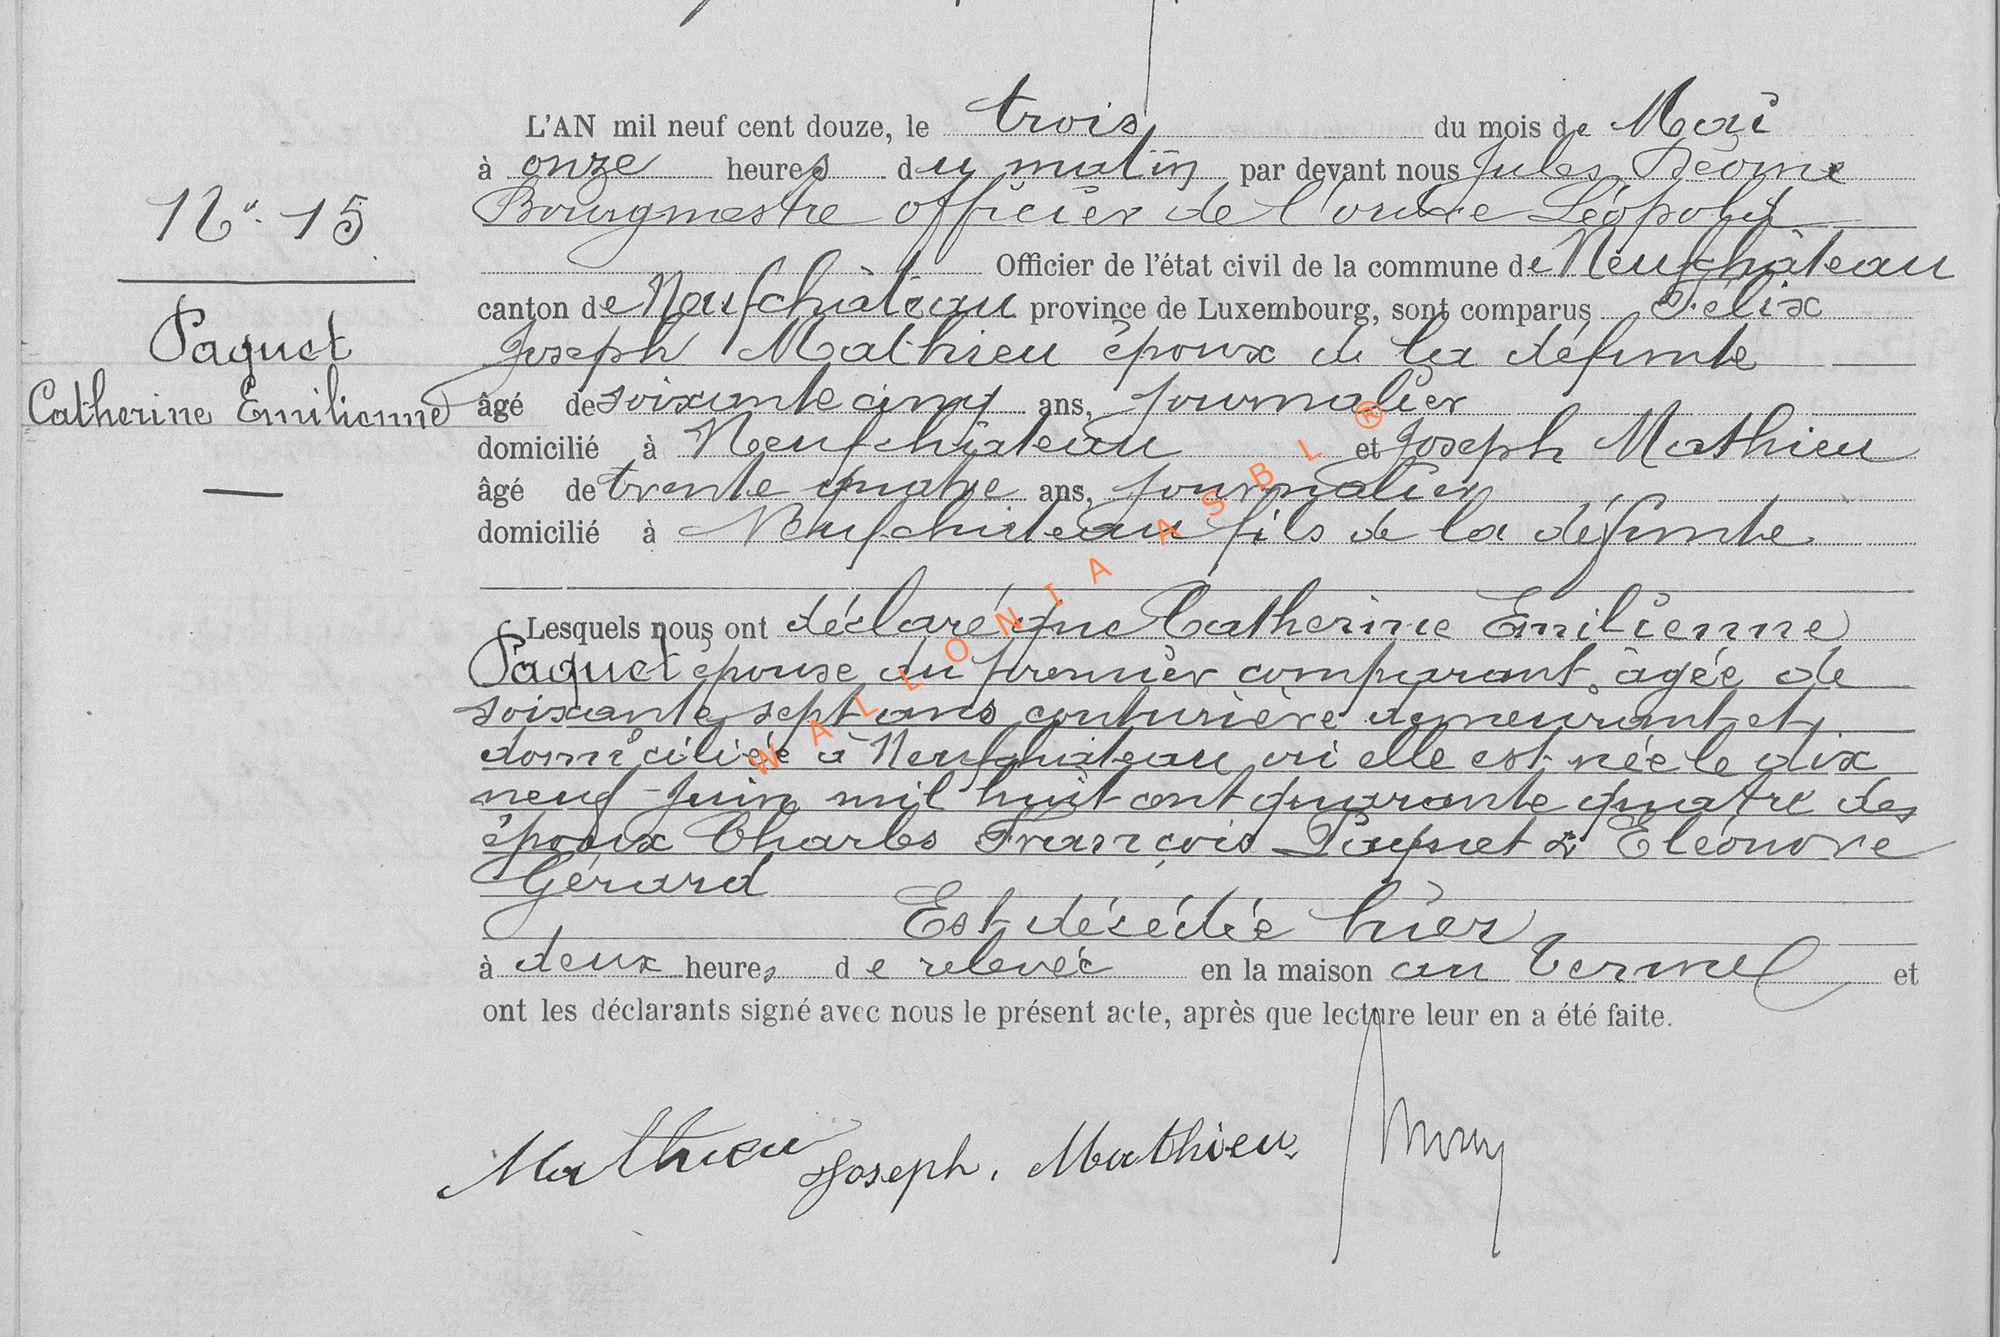 L'AN mil neuf cent douze, le trois du mois de Mai
à onze heures du matin par devant nous Jules
Bourgmestre officier de l'ordre Léopold
Officier de l'état civil de la commune de Neufchâteau
canton de Neufchâteau province de Luxembourg, sont comparus Félix
Joseph Mathieu époux de la défunte
âgé de soixante cinq ans, journalier
domicilié à Neufchâteau et Joseph Mathieu
âgé de trente quatre ans, journalier
domicilié à Neufchâteau fils de la défunte
Lesquels nous ont déclaré que Catherine Emilienne
Paquet épouse du premier comparant, âgée de
soixante sept ans couturière demeurant et
domiciliée à Neufchâteau où elle est née le dix
neuf Juin mil huit cent quarante quatre des
époux Charles François Paquet & Eléonore
Gérard
Est décédée hier
à deux heures de relevée en la maison au Terme et
ont les déclarants signé avec nous le présent acte, après que lecture leur en a été faite.
Mathieu Joseph. Mathieu
N° 15
Paquet
Catherine Emilienne
WALLONIA ASBL ®